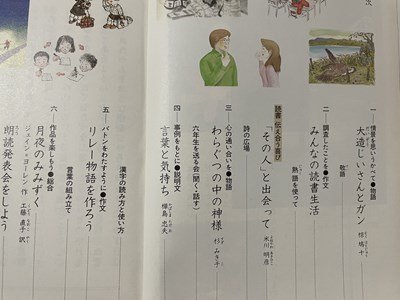 次
一 情景を思いうかべて●物語
大造じいさんとガン 椋 鳩十
敬語
二 調査したことを●作文
みんなの読書生活
熟語を使って
読書 伝え合う喜び
「その人」と出会って 米川 明彦
詩の広場
三 心の通い合いを●物語
わらぐつの中の神様 杉 みき子
六年生を送る会(聞く・話す)
四 事例をもとに●説明文
言葉と気持ち 樺島 忠夫
漢字の読み方と使い方
五 バトンをわたすように●作文
リレー物語を作ろう
言葉の組み立て
六 作品を楽しもう●総合
月夜のみみずく
ジェイン=ヨーレン 作 工藤 直子 訳
朗読発表会をしよう